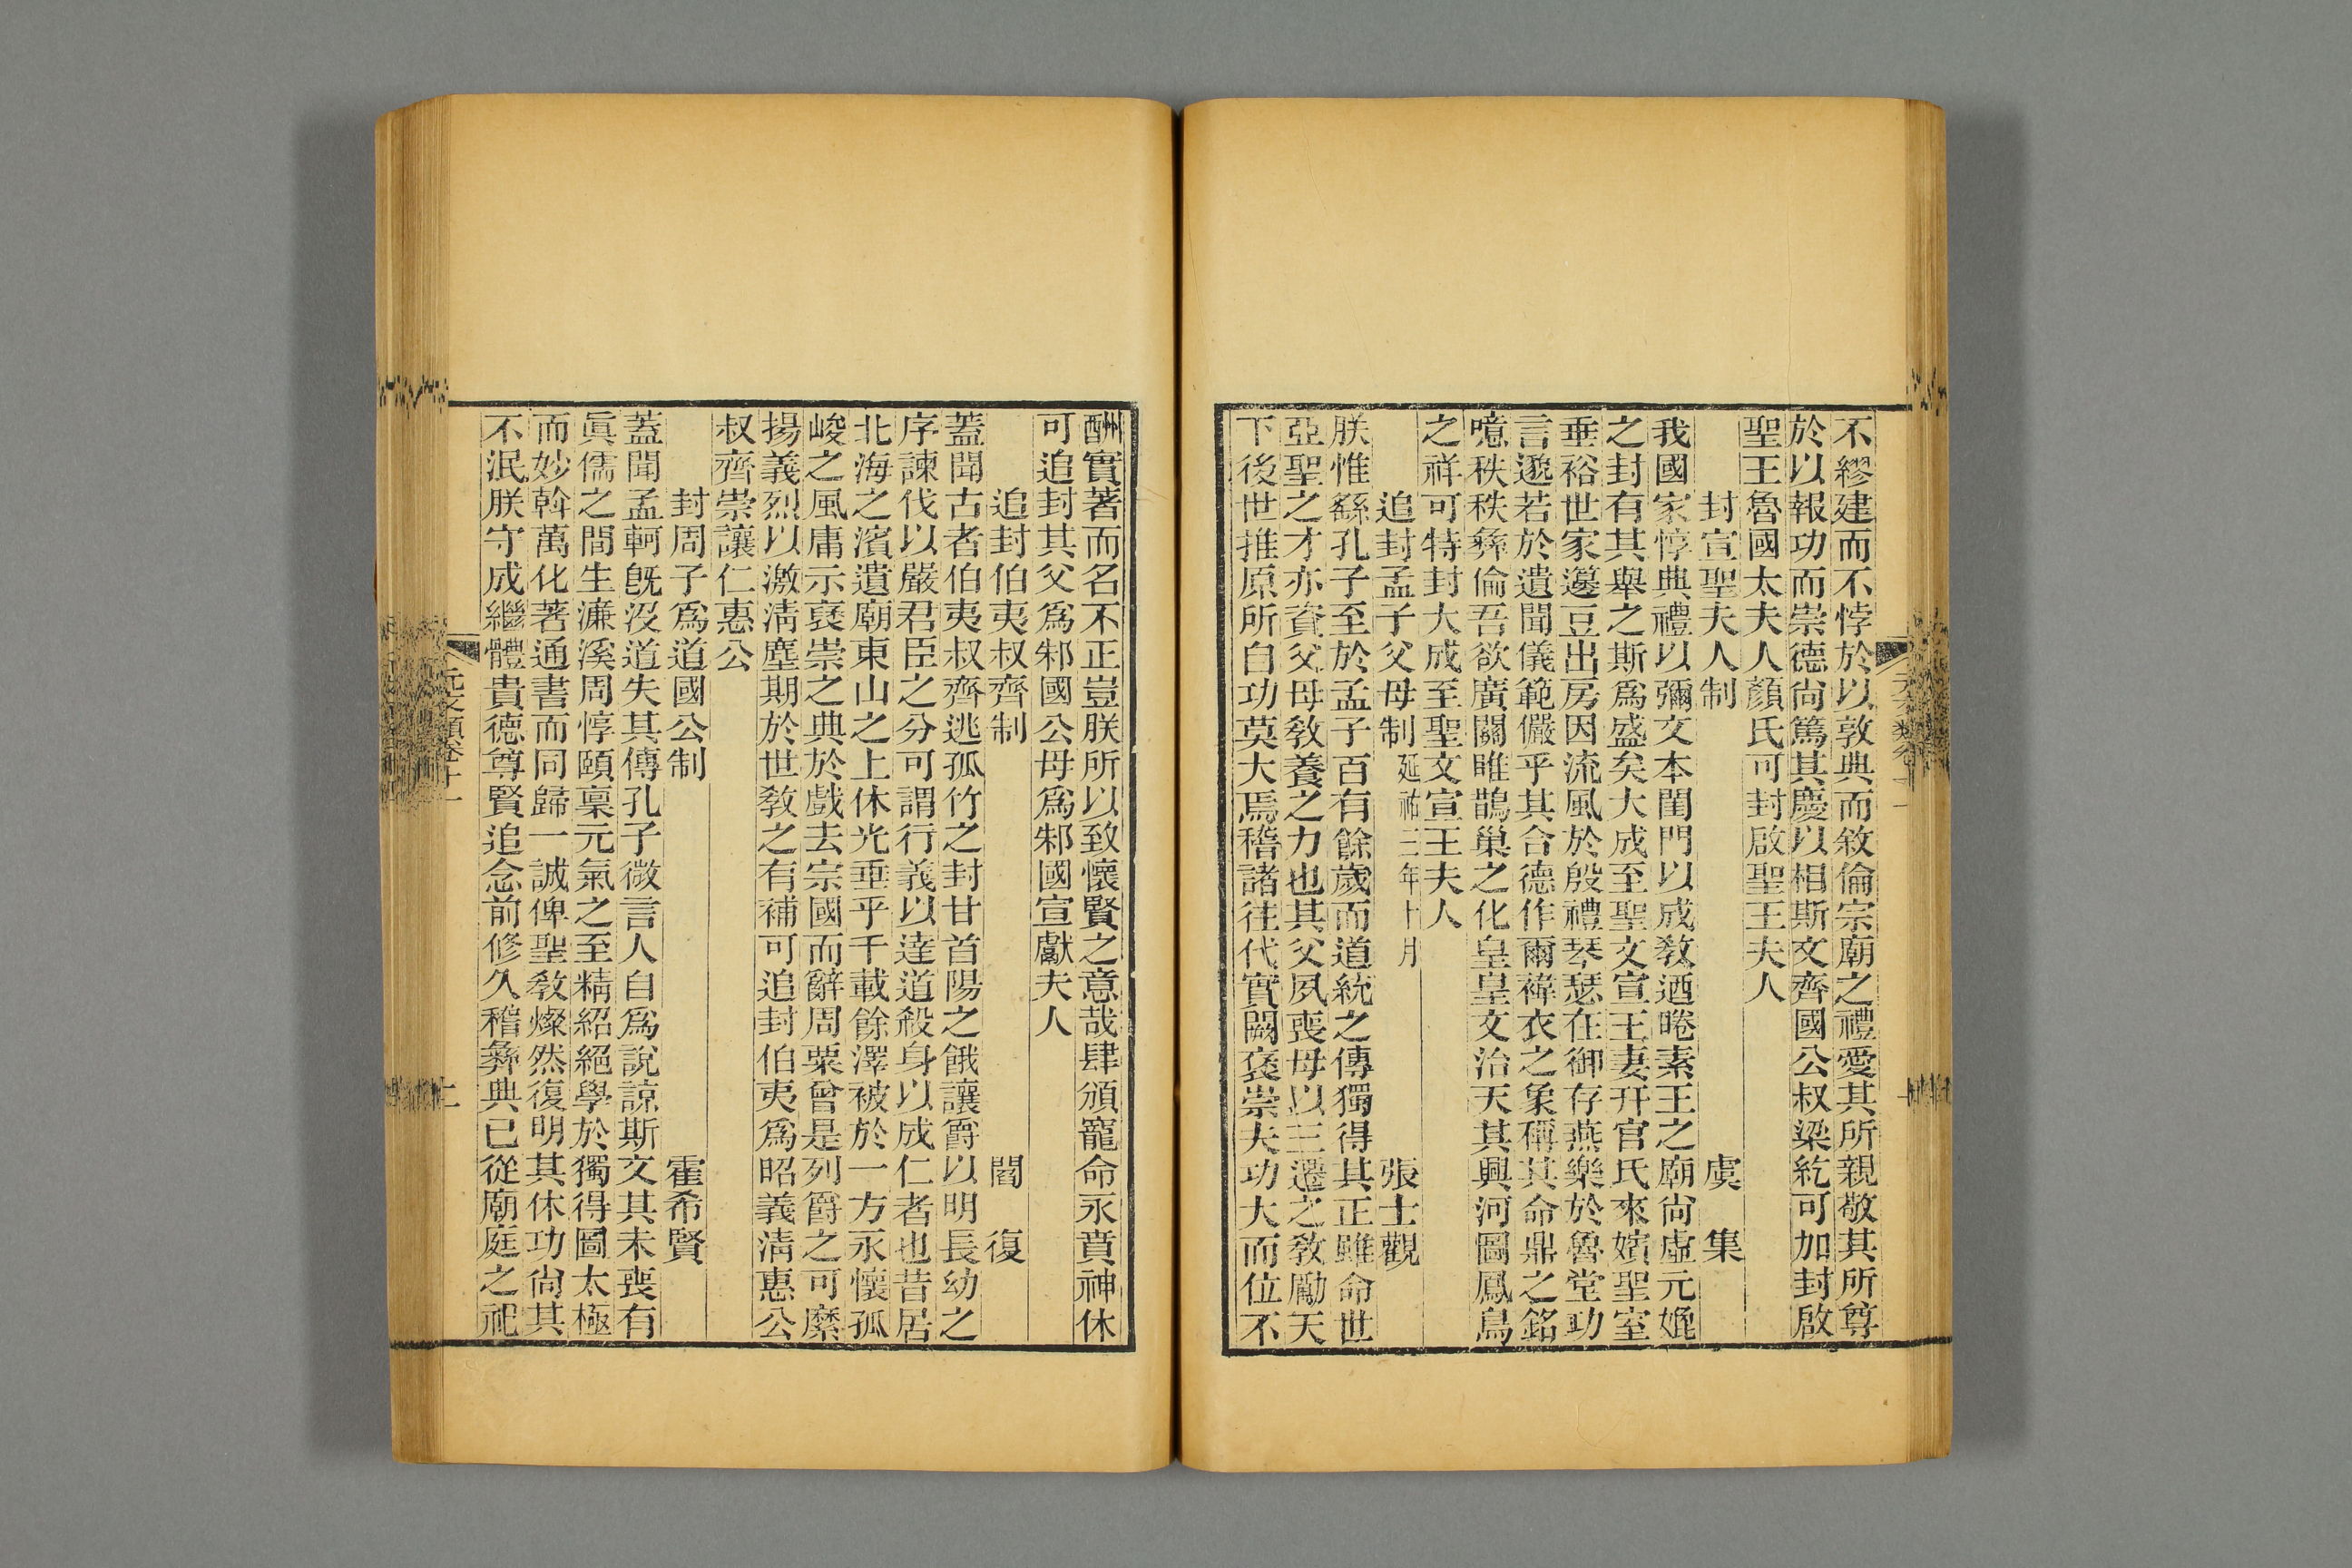 不繆建而不悖於以敦典而敘倫宗廟之禮愛其所親敬其所尊
於以報功而崇德尚篤其慶以相斯文齊國公叔梁紇可加封啟
聖王魯國太夫人顏氏可封啟聖王夫人
封宣聖夫人制 虞集
我國家惇典禮以彌文本閨門以成敎迺睠素王之廟尚虛元媲
之封有其舉之斯爲盛矣大成至聖文宣王妻幵官氏來嬪聖室
垂裕世家籩豆出房因流風於殷禮琴瑟在御存燕樂於魯堂功
言邈若於遺聞儀範儼乎其合德作爾褘衣之象稱其命鼎之銘
噫秩秩彝倫吾欲廣關雎鵲巢之化皇皇文治天其興河圖鳳鳥
之祥可特封大成至聖文宣王夫人
追封孟子父母制 延祐三年十月 張士觀
朕惟繇孔子至於孟子百有餘歲而道統之傳獨得其正雖命世
亞聖之才亦資父母敎養之力也其父夙喪母以三遷之敎勵天
下後世推原所自功莫大焉稽諸往代實闕褒崇夫功大而位不
酬實著而名不正豈朕所以致懷賢之意哉肆頒寵命永賁神休
可追封其父爲邾國公母爲邾國宣獻夫人
追封伯夷叔齊制 閻復
蓋聞古者伯夷叔齊逃孤竹之封甘首陽之餓讓爵以明長幼之
序諫伐以嚴君臣之分可謂行義以達道殺身以成仁者也昔居
北海之濱遺廟東山之上休光垂乎千載餘澤被於一方永懷孤
峻之風庸示襃崇之典於戲去宗國而辭周粟曾是列爵之可縻
揚義烈以激淸塵期於世敎之有補可追封伯夷爲昭義淸惠公
叔齊崇讓仁惠公
封周子爲道國公制 霍希賢
蓋聞孟軻旣沒道失其傳孔子微言人自爲說諒斯文其未喪有
眞儒之間生濂溪周惇頤稟元氣之至精紹絕學於獨得圖太極
而妙斡萬化著通書而同歸一誠俾聖敎燦然復明其休功尚其
不泯朕守成繼體貴德尊賢追念前修久稽彝典已從廟庭之祀
元文類卷十一